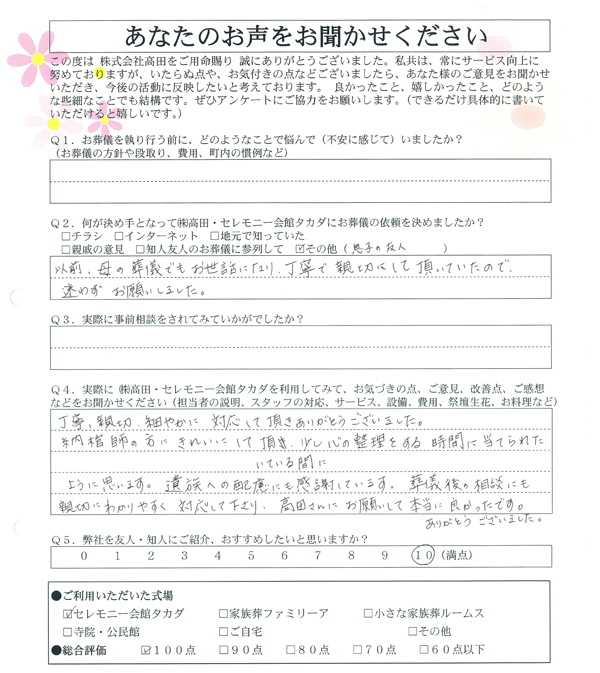 あなたのお声をお聞かせください
この度は 株式会社高田をご用命賜り 誠にありがとうございました。私共は、常にサービス向上に
努めておりますが、いたらぬ点や、お気付きの点などございましたら、あなた様のご意見をお聞かせ
いただき、今後の活動に反映したいと考えております。 良かったこと、嬉しかったこと、どのよう
な些細なことでも結構です。ぜひアンケートにご協力をお願いします。（できるだけ具体的に書いて
いただけると嬉しいです。）
Q１．お葬儀を執り行う前に、どのようなことで悩んで（不安に感じて）いましたか？
（お葬儀の方針や段取り、費用、町内の慣例など）
Q２．何が決め手となって㈱高田・セレモニー会館タカダにお葬儀の依頼を決めましたか？
□チラシ □インターネット □地元で知っていた
□親戚の意見 □知人友人のお葬儀に参列して ☑その他（ 息子の友人 ）
以前、母の葬儀でもお世話になり、丁寧で親切にして頂いていたので、
迷わず お願いしました。
Q３．実際に事前相談をされてみていかがでしたか？
Q４．実際に ㈱高田・セレモニー会館タカダを利用してみて、お気づきの点、ご意見、改善点、ご感想
などをお聞かせください（担当者の説明、スタッフの対応、サービス、設備、費用、祭壇生花、お料理など）
丁寧、親切、細やかに 対応して頂きありがとうございました。
納棺師の方に きれいにして頂き、少し心の整理をする 時間に当てられた
いている間に
ように思います。 遺族への配慮にも感謝しています。 葬儀後の相談にも
親切にわかりやすく 対応して下さり、高田さんに お願いして本当に良かったです。
ありがとう ございました。
Q５．弊社を友人・知人にご紹介、おすすめしたいと思いますか？
0 1 2 3 4 5 6 7 8 9 10（満点）
●ご利用いただいた式場
☑セレモニー会館タカダ □家族葬ファミリーア □小さな家族葬ルームス
□寺院・公民館 □ご自宅 □その他
●総合評価 ☑１００点 □９０点 □８０点 □７０点 □６０点以下